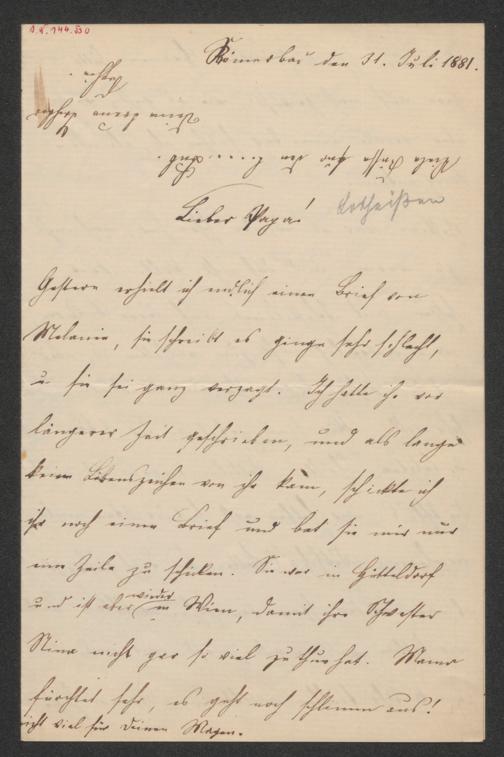 J. N. 144.530
Römerbad den 31. Juli 1881.
Lieber Papa!
Lotheißen
Gestern erhielt ich endlich einen Brief von
Melanie, sie schreibt es ginge sehr schlecht,
u. sie sei ganz verzagt. Ich hatte ihr vor
längerer Zeit geschrieben, und als lange
kein Lebenszeichen von ihr kam, schickte ich
ihr noch einen Brief und bat sie mir nur
eine Zeile zu schicken. Sie war in Hütteldorf
und ist aber wieder in Wien, damit ihre Schwester
Nina nicht gar so viel zu thun hat. Mama
fürchtet sehr, es geht noch schlimm aus!
nicht viel für Deinen Magen.
Viele Küsse von
Deine